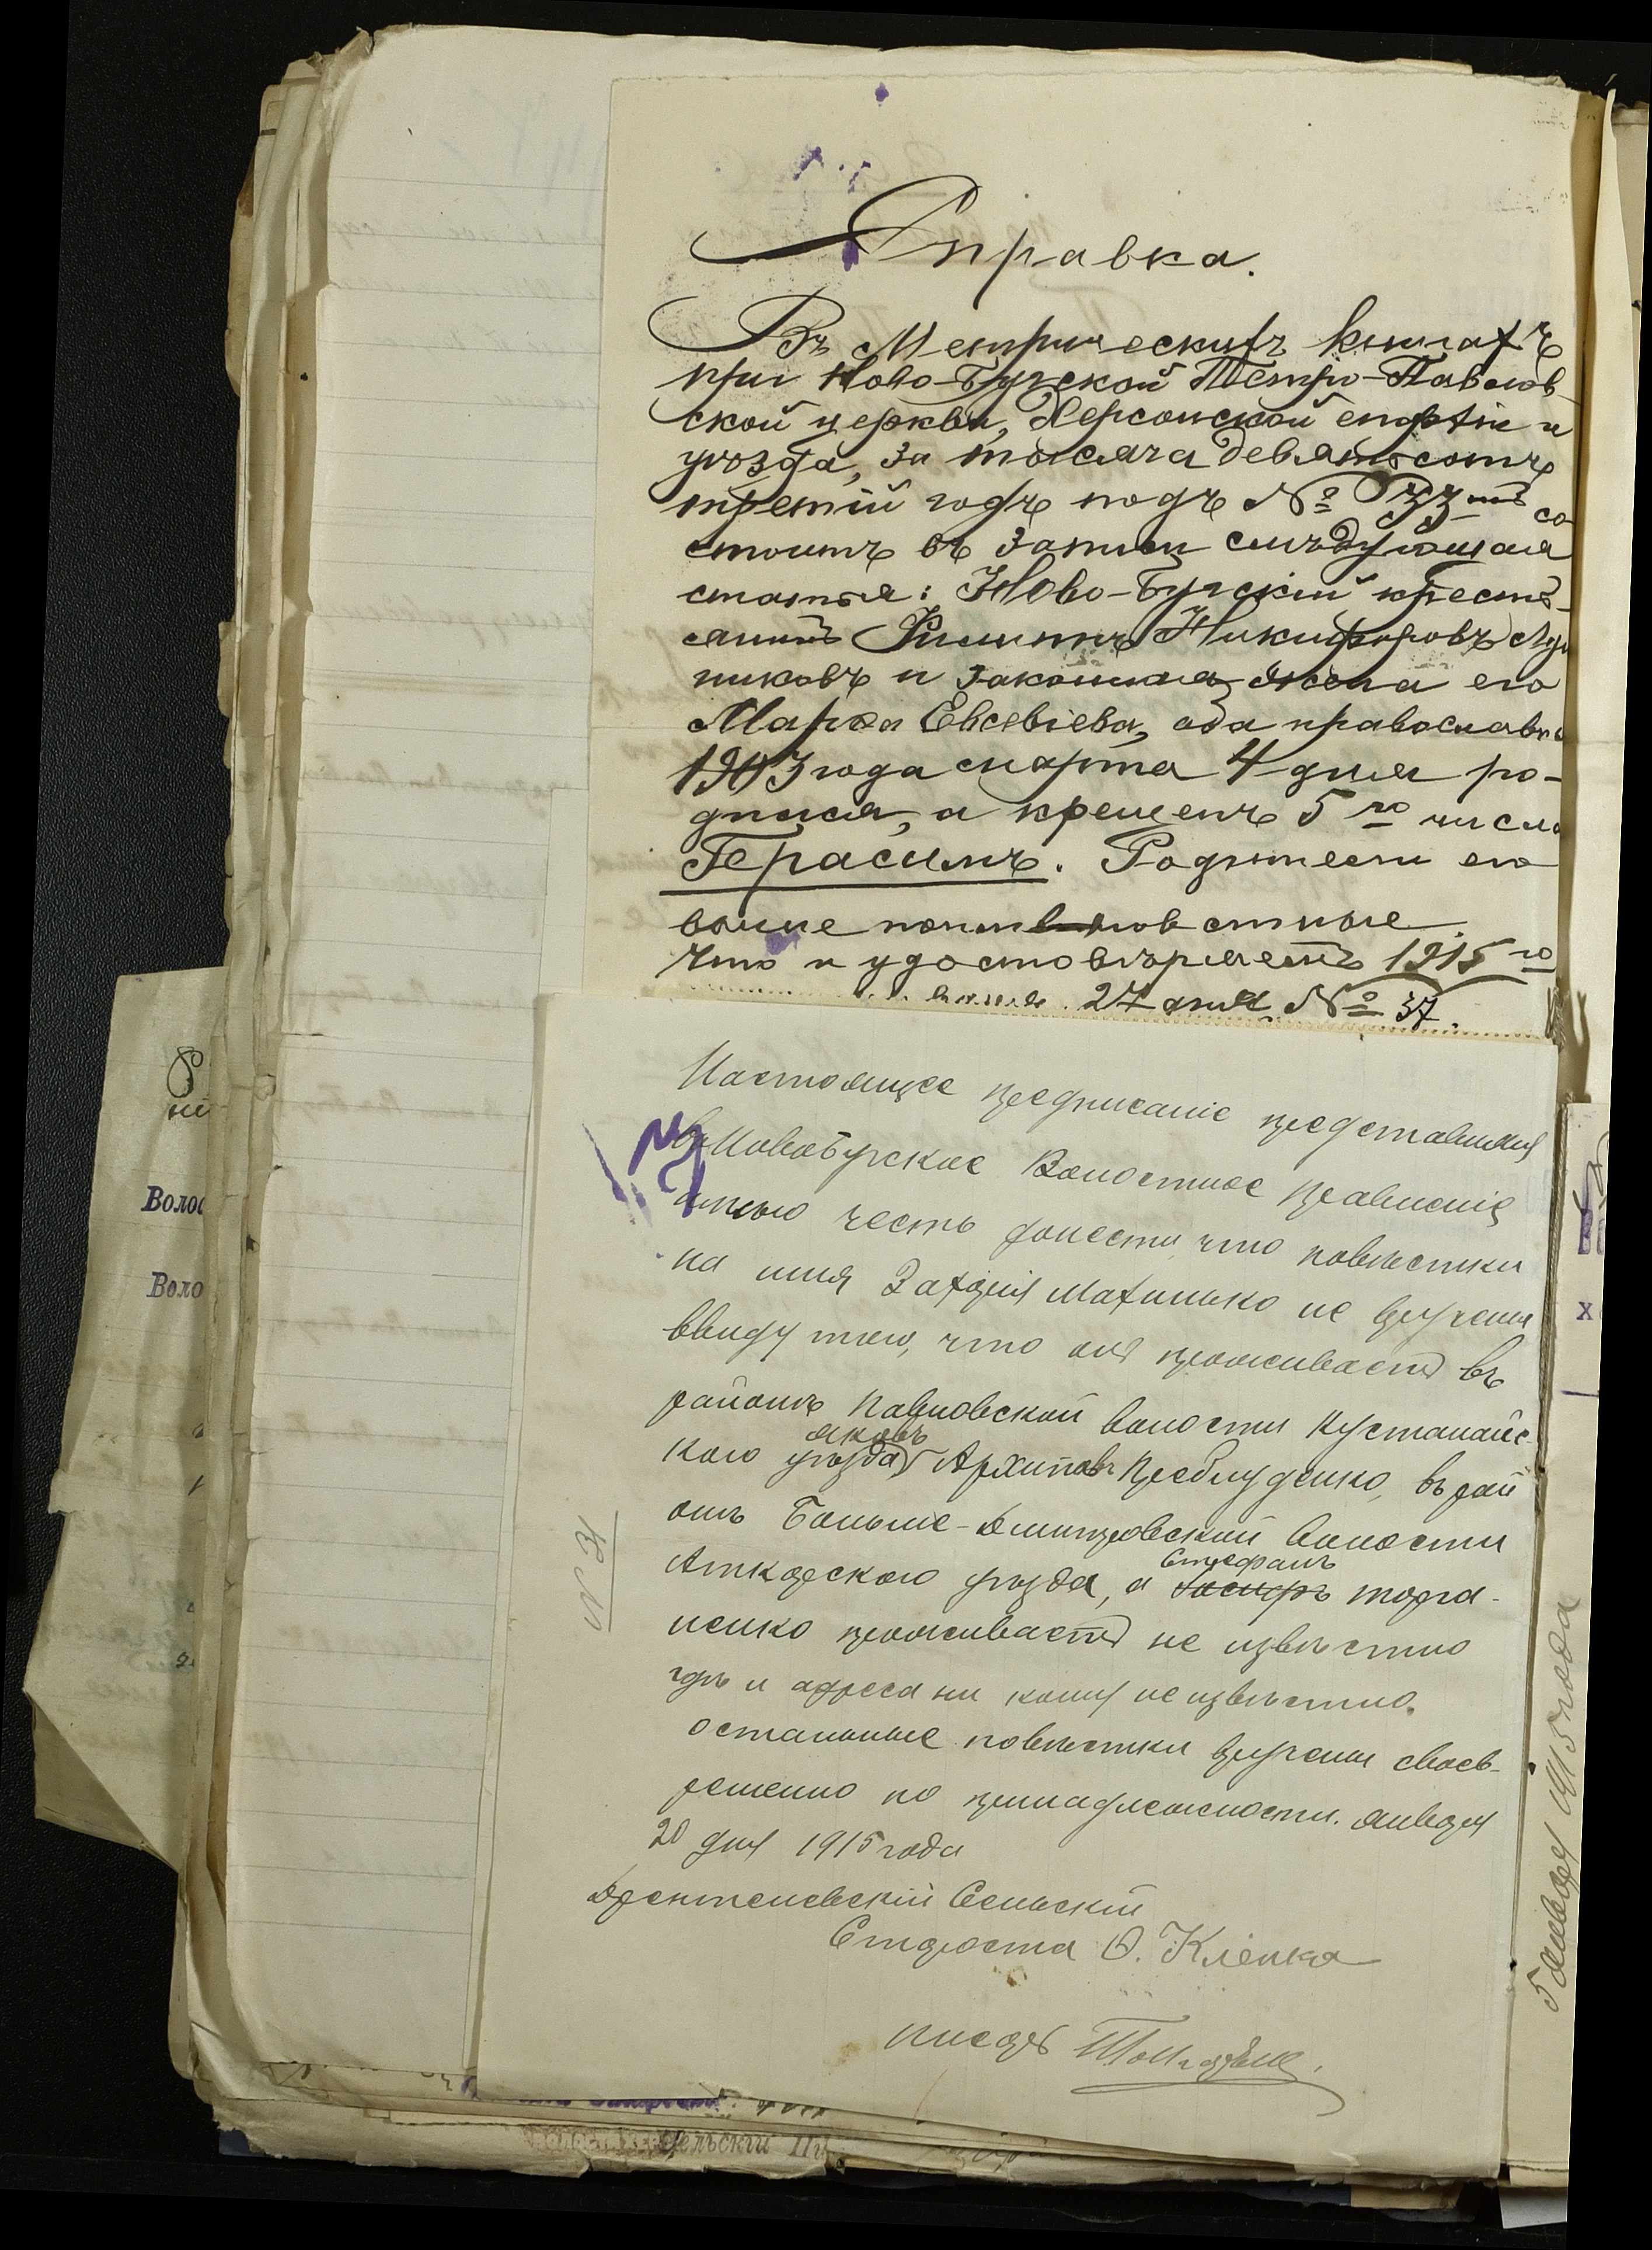 Справка.
Въ Метрическихъ книгахъ
при Ново-Бугской Петро-Павлов-
ской церкви, Херсонской епархіи и
уѣзда, за тысяча девятьсотъ
третій годъ подъ № со
стоитъ въ записи слѣдующая
статья: Ново-Бугскій крестья-
нинъ Филиппъ Никифоровъ
никовъ и законная жена его
Марѳа Евсевіева, оба православн
1903 года марта 4 дня ро-
дился, а крещенъ 5го числа
Герасимъ. Родители его
выше поименованные
Что и удостовѣряетъ 1915 го
27 дня № 37.
Настоящее предписаніе представляя
въ Новобугское Волостное Правленіе
имѣю честь донести, что повѣстки
на имя Захарія Махинько не вручены
ввиду того, что онъ проживаетъ въ
районѣ Павловской волости Кустанайс-
кого уѣзда, Яковъ Архиповъ Преблуденко, въ рай
онѣ Больше-Дмитровской волости
Аткарского уѣзда, а Стефанъ Торга-
ненко проживаетъ не извѣстно
гдѣ и адреса ни кому не извѣстно.
остальные повѣстки вручены своев-
ременно по принадлежности. января
20 дня 1915 года
Сельскій
Староста О. Кліпка
писарь
№ 31
5 января 1915 года
Волос
Воло